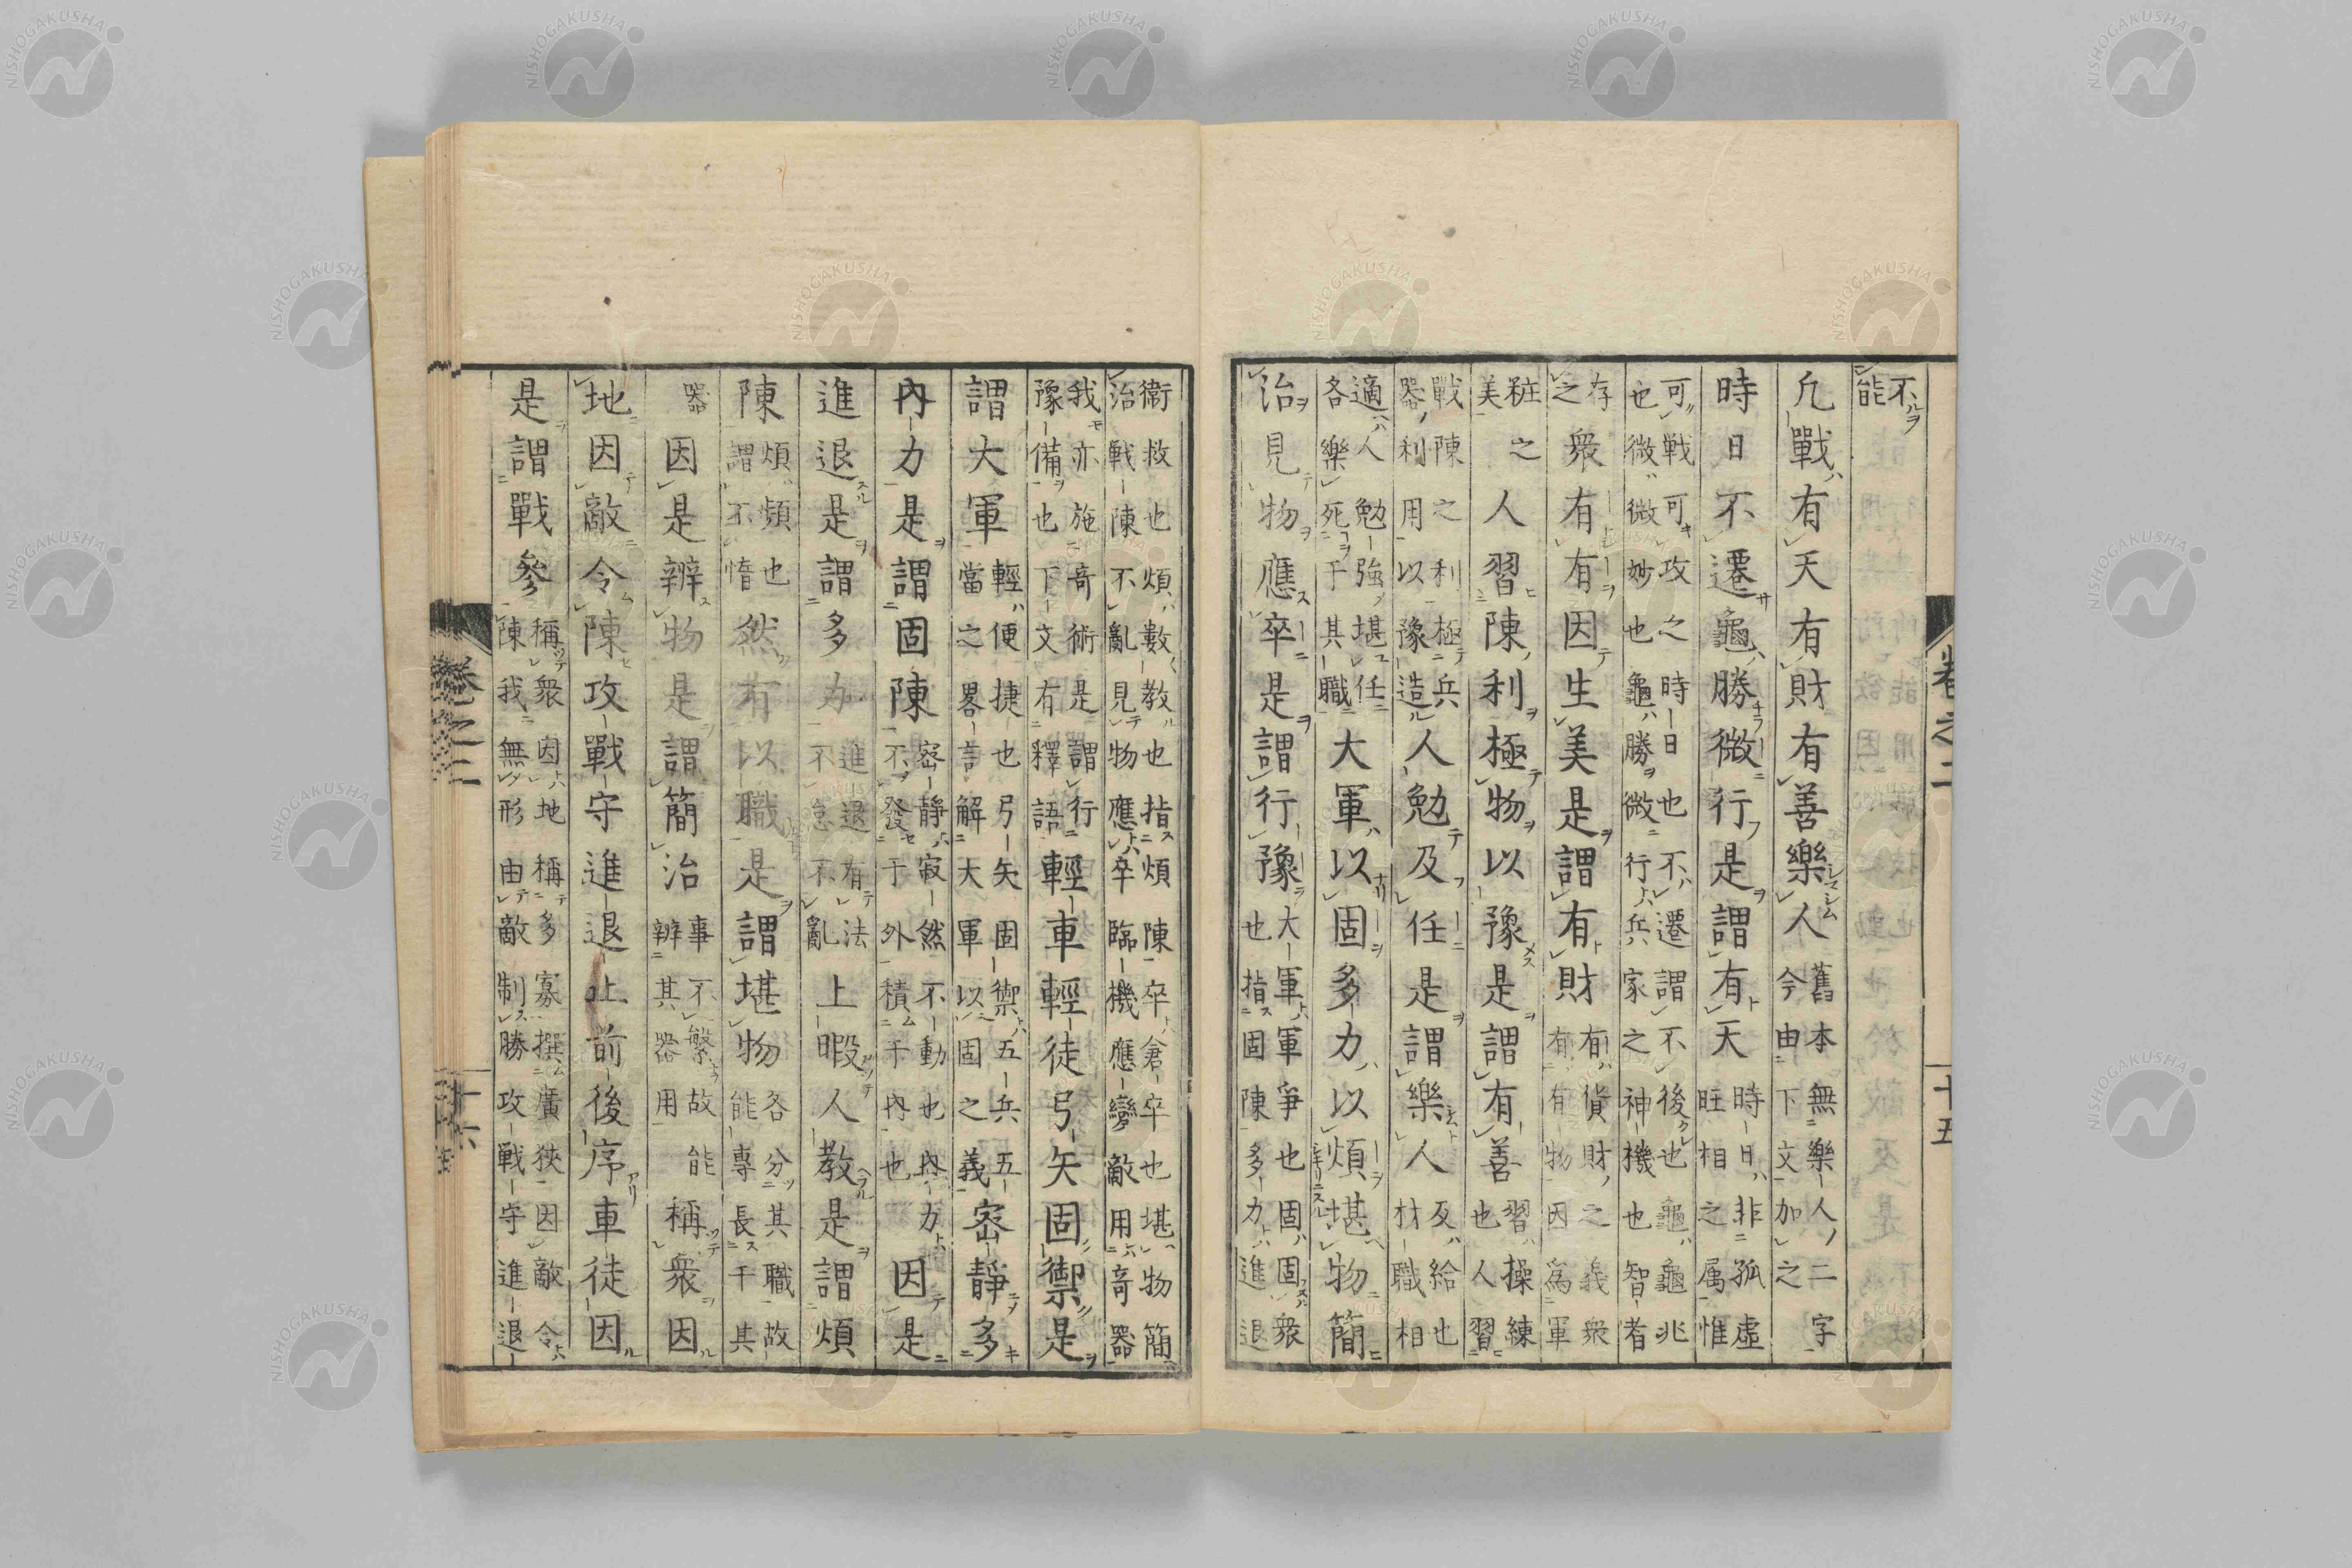 卷之二 十五
不能
凢戰有天有財有善樂人舊本無樂人二字今由下文加之
時日不遷龜勝微行是謂有天時日非孤虛旺相之属惟
可戦可攻之時日也不遷謂不後也龜龜兆也微微妙也龜勝微行兵家之神機也智者
存之衆有有因生美是謂有財有貨財之義衆有有物因爲軍
粧美之人習陳利極物以豫是謂有善習操練也人習
戰陳之利極兵器利用以豫造人勉及任是謂樂人及給也材職相
適人勉強堪任各樂死于其職大軍以固多力以煩堪物簡
治見物應卒是謂行豫大軍軍爭也固固衆也指固陳多力進退
衛救也煩數教也指煩陳卒倉卒也堪物簡治戰陳不亂見物應卒臨機應變敵用奇器
我亦施奇術是謂行豫備也下文有釋語輕車輕徒弓矢固禦是
謂大軍輕便捷也弓矢固禦五兵五當之畧言解大軍以固之義密靜多
內力是謂固陳密靜寂然不動也內力不發于外積于內也因是
進退是謂多力進退有法不怠不亂上暇人教是謂煩
陳煩頻也謂不惰然有以職是謂堪物各分其職故能專長于其
器因是辨物是謂簡治事不繁故能辨其器用稱衆因
地因敵令陳攻戰守進退止前後序車徒因
是謂戰參稱衆因地稱多寡撰廣狹因敵令陳我無形由敵制勝攻戰守進退
卷之二 十六